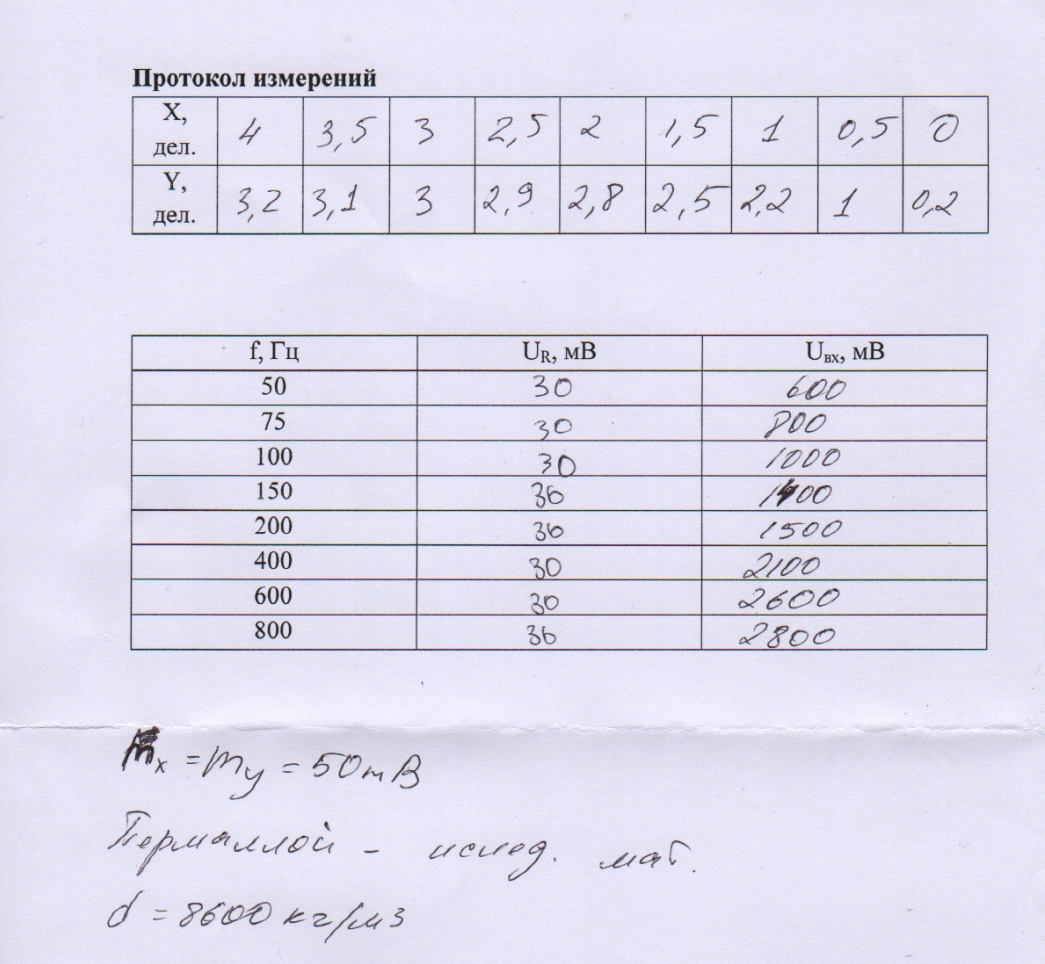 Протокол измерений
X, дел. 4 3,5 3 2,5 2 1,5 1 0,5 0
Y, дел. 3,2 3,1 3 2,9 2,8 2,5 2,2 1 0,2
f, Гц U_R, мВ U_вх, мВ
50 30 600
75 30 800
100 30 1000
150 30 1400
200 30 1500
400 30 2100
600 30 2600
800 30 2800
m_x = m_y = 50 mВ
Пермаллой - исслед. мат.
d = 8600 кг/м3